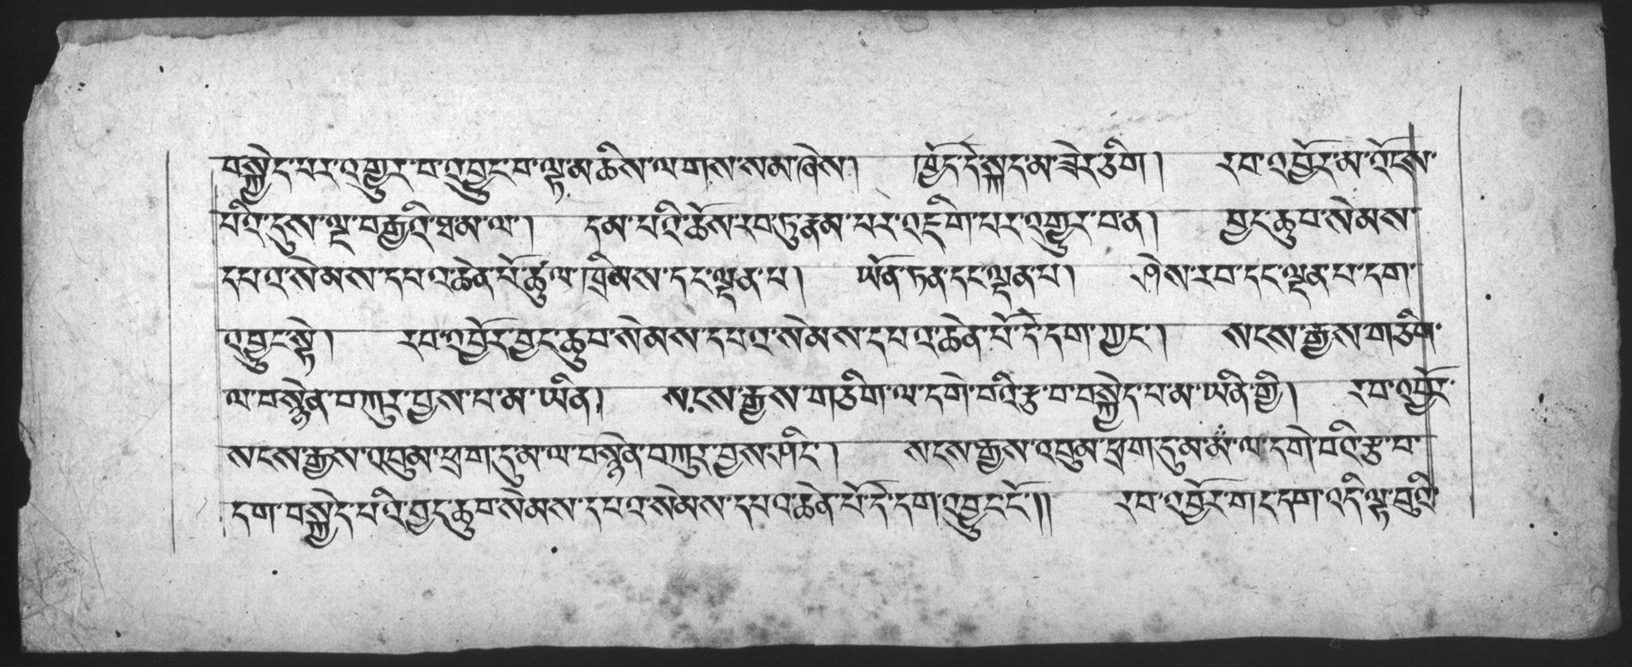 བསྐྱེད་པར་འགྱུར་བ་འབྱུང་བ་ལྟ་མ་ཆིས་ལགས་སམ་ཞེས། ཁྱོད་དེ་སྐད་མ་ཟེར་ཅིག། རབ་འབྱོར་མ་འོངས་
པའི་དུས་ལྔ་བརྒྱའི་ཐ་མ་ལ། དམ་པའི་ཆོས་རབ་ཏུ་རྣམ་པར་འཇིག་པར་འགྱུར་བ་ན། བྱང་ཆུབ་སེམས་
དཔའ་སེམས་དཔའ་ཆེན་པོ་ཚུལ་ཁྲིམས་དང་ལྡན་པ། ཡོན་ཏན་དང་ལྡན་པ། ཤེས་རབ་དང་ལྡན་པ་དག་
འབྱུང་སྟེ། རབ་འབྱོར་བྱང་ཆུབ་སེམས་དཔའ་སེམས་དཔའ་ཆེན་པོ་དེ་དག་ཀྱང་། སངས་རྒྱས་གཅིག་
ལ་བསྙེན་བཀུར་བྱས་པ་མ་ཡིན། སངས་རྒྱས་གཅིག་ལ་དགེ་བའི་རྩ་བ་བསྐྱེད་པ་མ་ཡིན་གྱི། རབ་འབྱོར་
སངས་རྒྱས་འབུམ་ཕྲག་དུ་མ་ལ་བསྙེན་བཀུར་བྱས་ཤིང་། སངས་རྒྱས་འབུམ་ཕྲག་དུ་མ་ལ་དགེ་བའི་རྩ་བ་
དག་བསྐྱེད་པའི་བྱང་ཆུབ་སེམས་དཔའ་སེམས་དཔའ་ཆེན་པོ་དེ་དག་འབྱུང་ངོ་།། རབ་འབྱོར་གང་དག་འདི་ལྟ་བུའི་